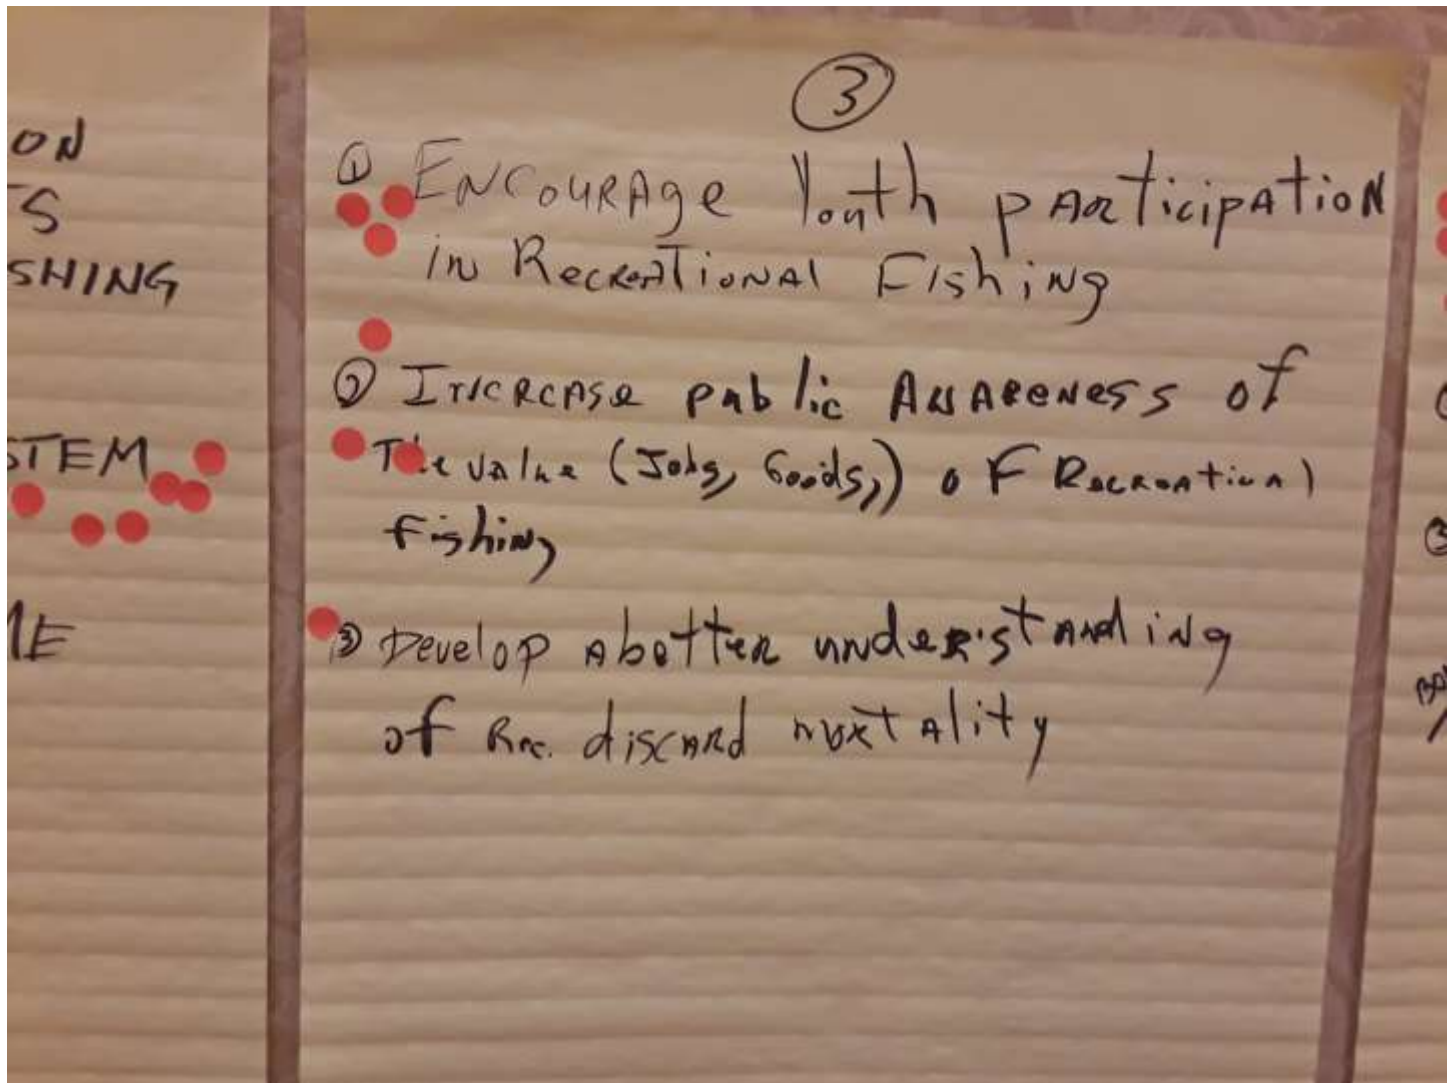 ON
TS
SHING
STEM
ME
③
① Encourage Youth participation
in Recreational Fishing
② Increase public Awareness of
The value (Jobs, Goods,) of Recreational
fishing
③ Develop a better understanding
of Rec. discard mortality